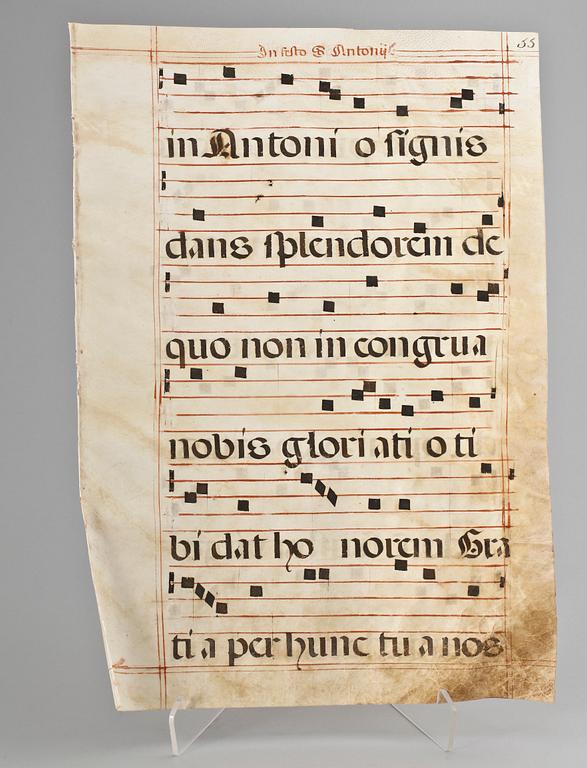 In festo S Antonij
55
in Antoni o signis
dans splendorem de
quo non in congrua
nobis gloriati o ti
bi dat ho norem Gra
ti a per hunc tu a nos